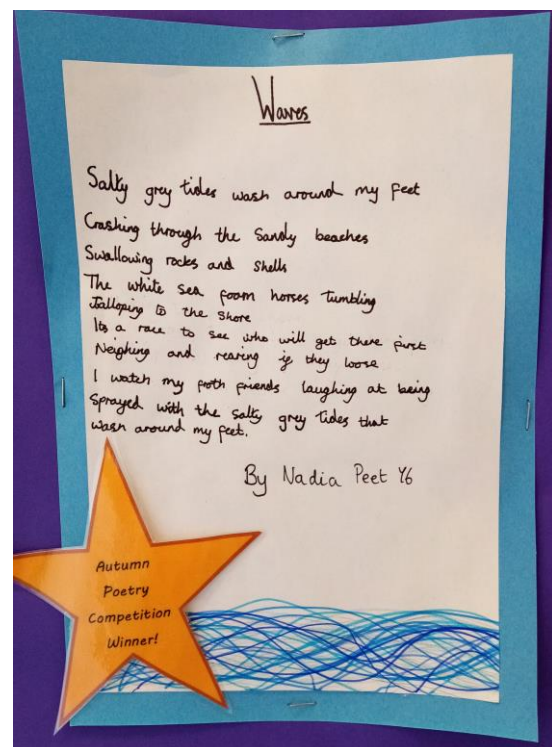 Waves
Salty grey tides wash around my feet
Crashing through the Sandy beaches
Swallowing rocks and shells
The white sea foam horses tumbling
Galloping to the shore
Its a race to see who will get there first
Neighing and rearing if they loose
I watch my froth friends laughing at being
Sprayed with the salty grey tides that
wash around my feet.
By Nadia Peet Y6
Autumn
Poetry
Competition
Winner!